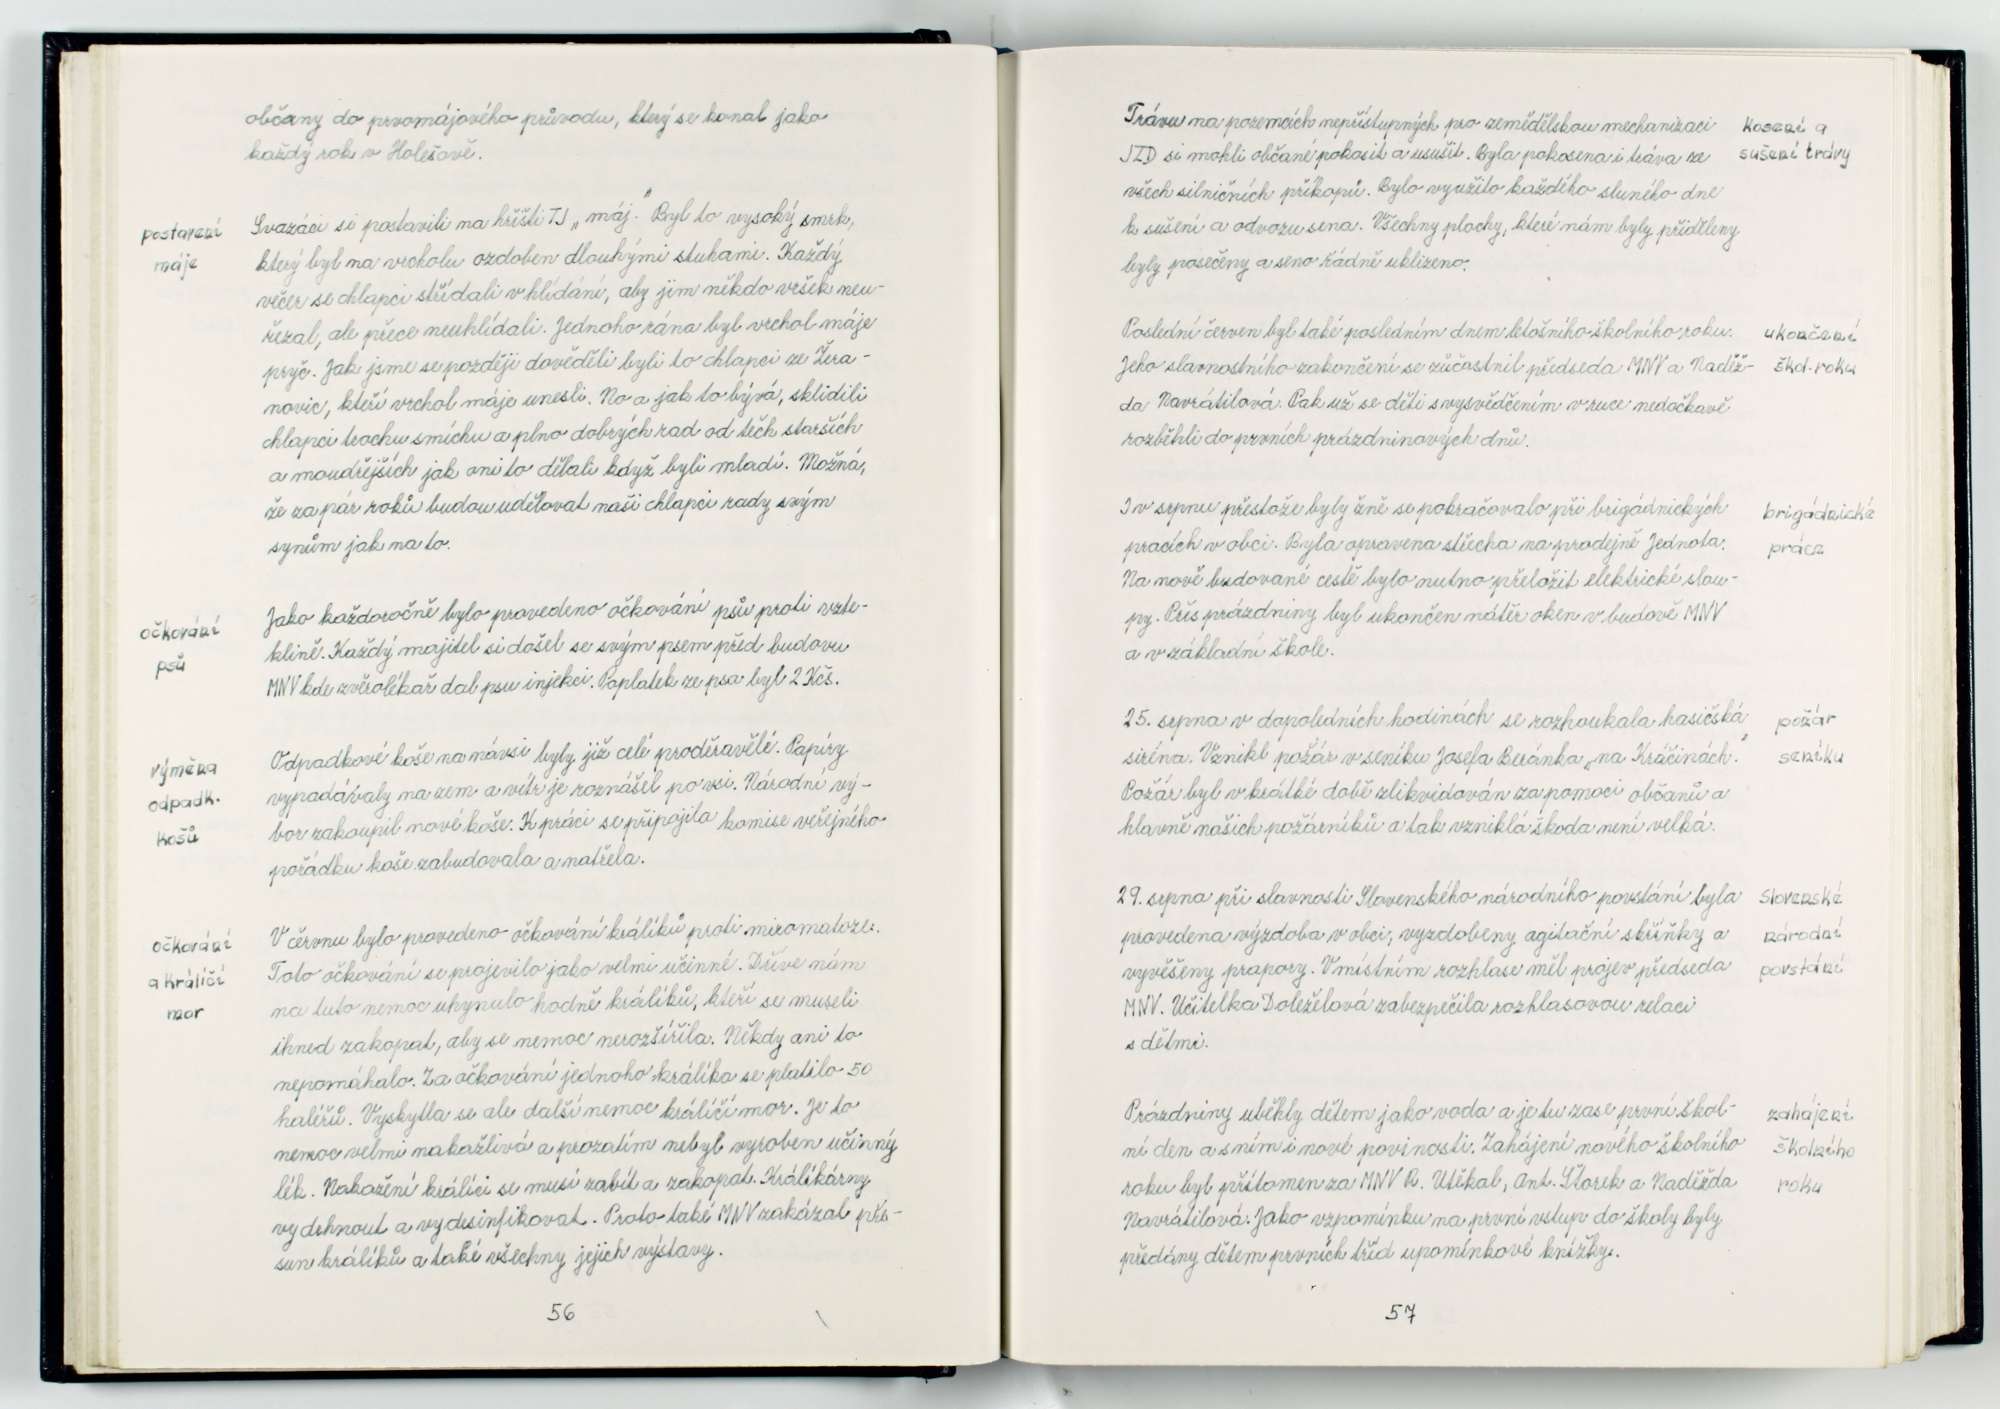 občany do prvomájového průvodu, který se konal jako
každý rok v Holešově.
postavení
máje
Svazáci si postavili na hřišti TJ „máj.“ Byl to vysoký smrk,
který byl na vrcholu ozdoben dlouhými stuhami. Každý
večer se chlapci střídali v hlídání, aby jim někdo vršek neu-
řezal, ale přece neuhlídali. Jednoho rána byl vrchol máje
pryč. Jak jsme se později dověděli byli to chlapci ze Žera-
novic, kteří vrchol máje unesli. No a jak to bývá, sklidili
chlapci trochu smíchu a plno dobrých rad od těch starších
a moudřejších jak oni to dělali když byli mladí. Možná,
že za pár roků budou udělovat naši chlapci rady svým
synům jak na to.
očkování
psů
Jako každoročně bylo provedeno očkování psů proti vzte-
klině. Každý majitel si došel se svým psem před budovu
MNV kde zvěrolékař dal psu injekci. Poplatek ze psa byl 2 Kčs.
výměna
odpadk.
košů
Odpadkové koše na návsi byly již celé proděravělé. Papíry
vypadávaly na zem a vítr je roznášel po vsi. Národní vý-
bor zakoupil nové koše. K práci se připojila komise veřejného
pořádku koše zabudovala a natřela.
očkování
a králičí
mor
V červnu bylo provedeno očkování králíků proti miromatoze.
Toto očkování se projevilo jako velmi účinné. Dříve nám
na tuto nemoc uhynulo hodně králíků, kteří se museli
ihned zakopat, aby se nemoc nerozšířila. Někdy ani to
nepomáhalo. Za očkování jednoho králíka se platilo 50
haléřů. Vyskytla se ale další nemoc králičí mor. Je to
nemoc velmi nakažlivá a prozatím nebyl vyroben učinný
lék. Nakažení králíci se musí zabít a zakopat. Králíkárny
vydrhnout a vydesinfikovat. Proto také MNV zakázal pře-
sun králíků a také všechny jejich výstavy.
56
Trávu na pozemcích nepřístupných pro zemědělskou mechanizaci
JZD si mohli občané pokosit a usušit. Byla pokosena i tráva ze
všech silničních příkopů. Bylo využito každého sluného dne
k sušení a odvozu sena. Všechny plochy, které nám byly přiděleny
byly posečeny a seno řádně uklizeno.
kosení a
sušení trávy
Poslední červen byl také posledním dnem letošního školního roku.
Jeho slavnostního zakončení se zúčastnil předseda MNV a Naděž-
da Navrátilová. Pak už se děti s vysvědčením v ruce nedočkavě
rozběhli do prvních prázdninových dnů.
ukončení
škol. roku
I v srpnu přestože byly žně se pokračovalo při brigádnických
pracích v obci. Byla opravena střecha na prodejně Jednota.
Na nově budované cestě bylo nutno přeložit elektrické slou-
py. Přes prázdniny byl ukončen nátěr oken v budově MNV
a v základní škole.
brigádnické
práce
25. srpna v dopoledních hodinách se rozhoukala hasičská
siréna. Vznikl požár v seníku Josefa Beránka „na Kráčinách.“
Požár byl v krátké době zlikvidován za pomoci občanů a
hlavně našich požárníků a tak vzniklá škoda není velká.
požár
seníku
29. srpna při slavnosti Slovenského národního povstání byla
provedena výzdoba v obci, vyzdobeny agitační skříňky a
vyvěšeny prapory. V místním rozhlase měl projev předseda
MNV. Učitelka Doleželová zabezpečila rozhlasovou relaci
s dětmi.
Slovenské
národní
povstání
Prázdniny uběhly dětem jako voda a je tu zase první škol-
ní den a s ním i nové povinosti. Zahájení nového školního
roku byl přítomen za MNV B. Utěkal, Ant. Štorek a Naděžda
Navrátilová. Jako vzpomínku na první vstup do školy byly
předány dětem prvních tříd upomínkové knížky.
zahájení
školního
roku
57